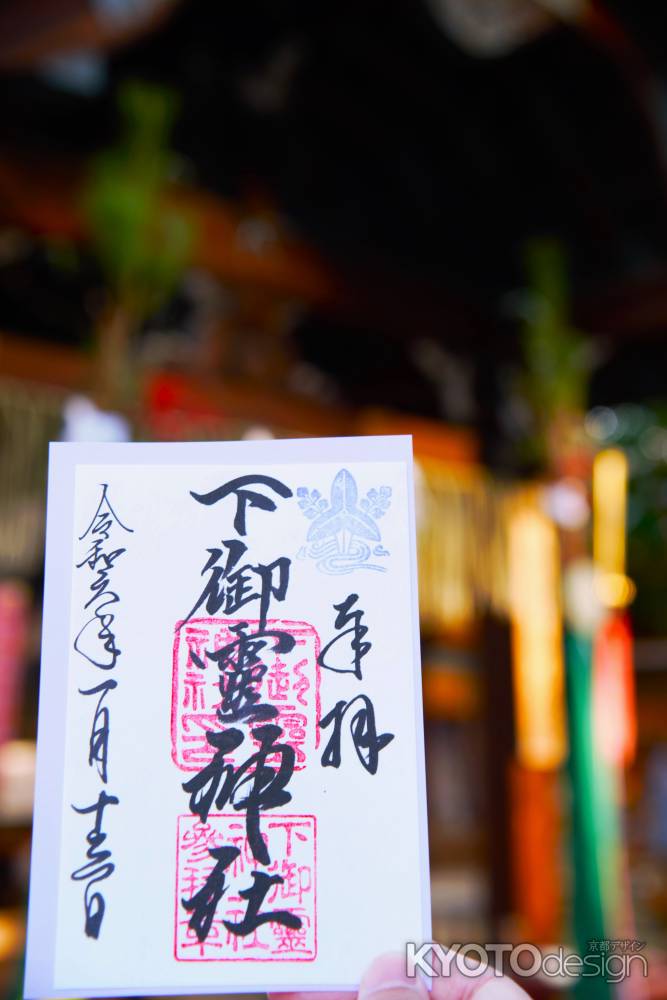 奉拝
下御靈神社
令和六年一月十六日
下御靈
神社
参拝章
京都デザイン
KYOTOdesign